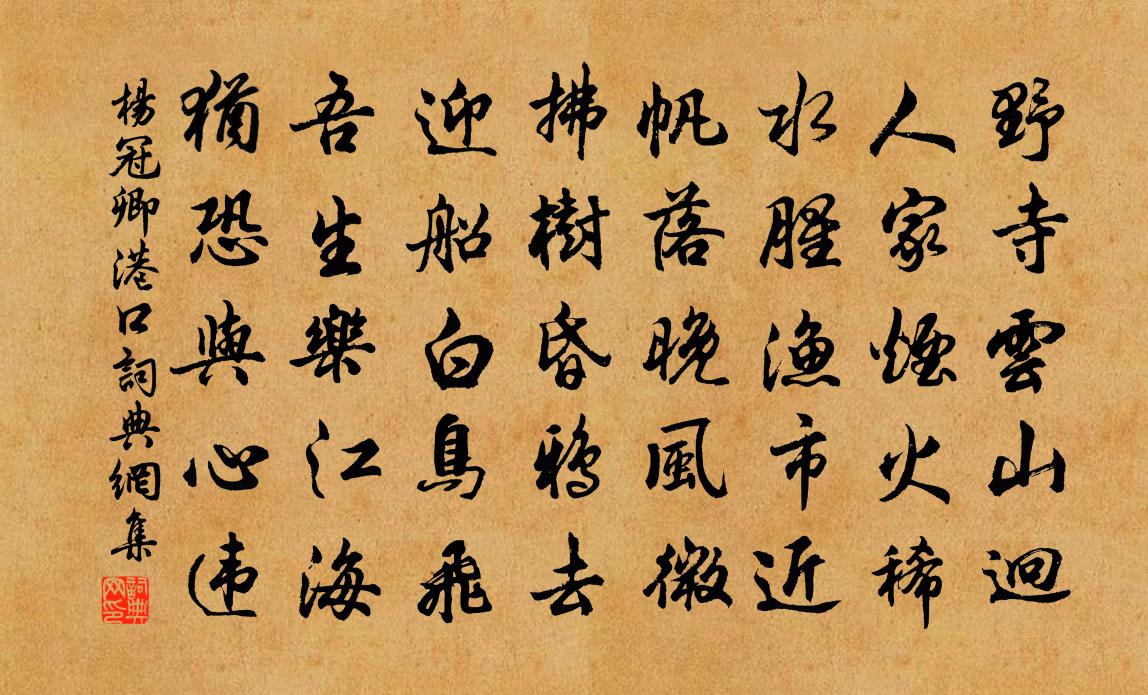 野寺雲山迥
人家煙火稀
水腥漁市近
帆落晚風微
拂樹昏鴉去
迎船白鳥飛
吾生樂江海
猶恐與心違
楊冠卿港口詞典網集
詞典网印